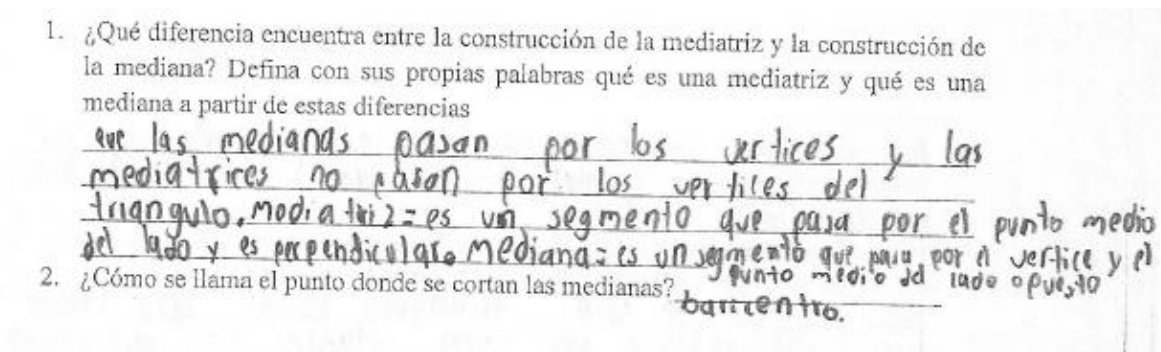 1. ¿Qué diferencia encuentra entre la construcción de la mediatriz y la construcción de
la mediana? Defina con sus propias palabras qué es una mediatriz y qué es una
mediana a partir de estas diferencias
que las medianas pasan por los vertices y las
mediatrices no pasan por los vertices del
triangulo. Mediatriz=es un segmento que pasa por el punto medio
del lado y es perpendicular. Mediana=es un segmento que pasa por el vertice y el
punto medio del lado opuesto
2. ¿Cómo se llama el punto donde se cortan las medianas?
barricentro.